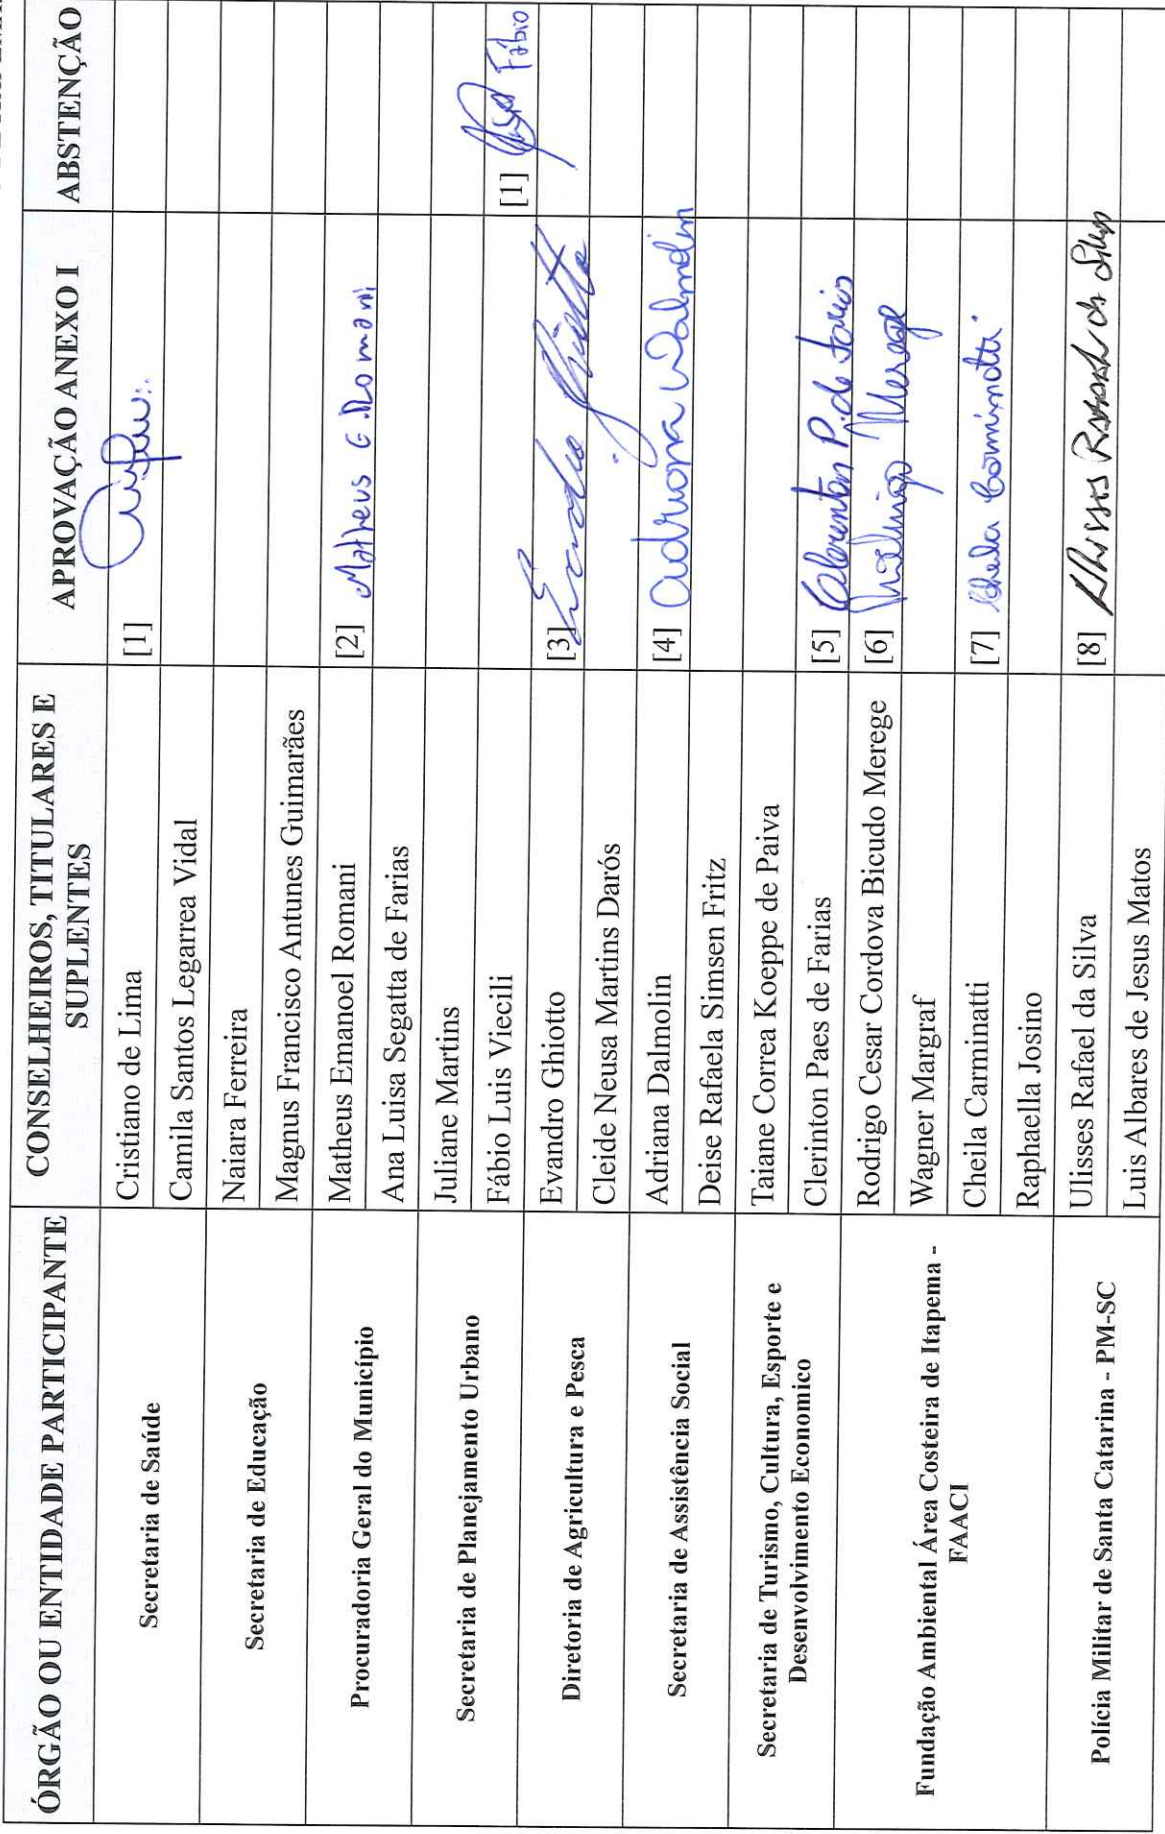 ÓRGÃO OU ENTIDADE PARTICIPANTE
CONSELHEIROS, TITULARES E
SUPLENTES
APROVAÇÃO ANEXO I
ABSTENÇÃO
Secretaria de Saúde
Cristiano de Lima
[1]
Camila Santos Legarrea Vidal
Secretaria de Educação
Naiara Ferreira
Magnus Francisco Antunes Guimarães
Procuradoria Geral do Município
Matheus Emanoel Romani
[2] Matheus E. Romani
Ana Luisa Segatta de Farias
Secretaria de Planejamento Urbano
Juliane Martins
Fábio Luis Viecili
[1] Fábio
Diretoria de Agricultura e Pesca
Evandro Ghiotto
[3] Evandro Ghiotto
Cleide Neusa Martins Darós
Secretaria de Assistência Social
Adriana Dalmolin
[4] Adriana Dalmolin
Deise Rafaela Simsen Fritz
Secretaria de Turismo, Cultura, Esporte e
Desenvolvimento Economico
Taiane Correa Koeppe de Paiva
Clerinton Paes de Farias
[5] Clerinton P. de Farias
Fundação Ambiental Área Costeira de Itapema -
FAACI
Rodrigo Cesar Cordova Bicudo Merege
[6] Merege
Wagner Margraf
Cheila Carminatti
[7] Cheila Carminatti
Raphaella Josino
Polícia Militar de Santa Catarina - PM-SC
Ulisses Rafael da Silva
[8] Ulisses Rafael da Silva
Luis Albares de Jesus Matos